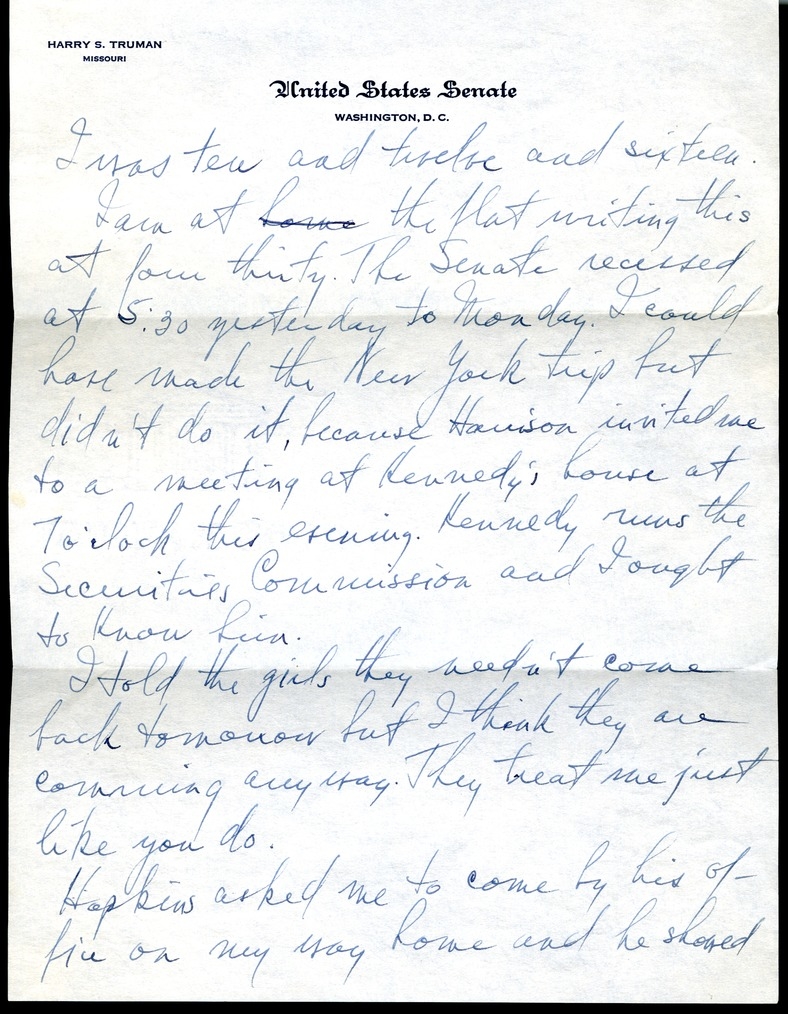 HARRY S. TRUMAN
MISSOURI
United States Senate
WASHINGTON, D. C.
I was ten and twelve and sixteen.
I am at home the flat writing this
at four thirty. The Senate recessed
at 5:30 yesterday to Monday. I could
have made the New York trip but
didn't do it, because Harrison invited me
to a meeting at Kennedy's house at
7 o'clock this evening. Kennedy runs the
Securities Commission and I ought
to know him.
I told the girls they needn't come
back tomorrow but I think they are
comming anyway. They treat me just
like you do.
Hopkins asked me to come by his of-
fice on my way home and he showed